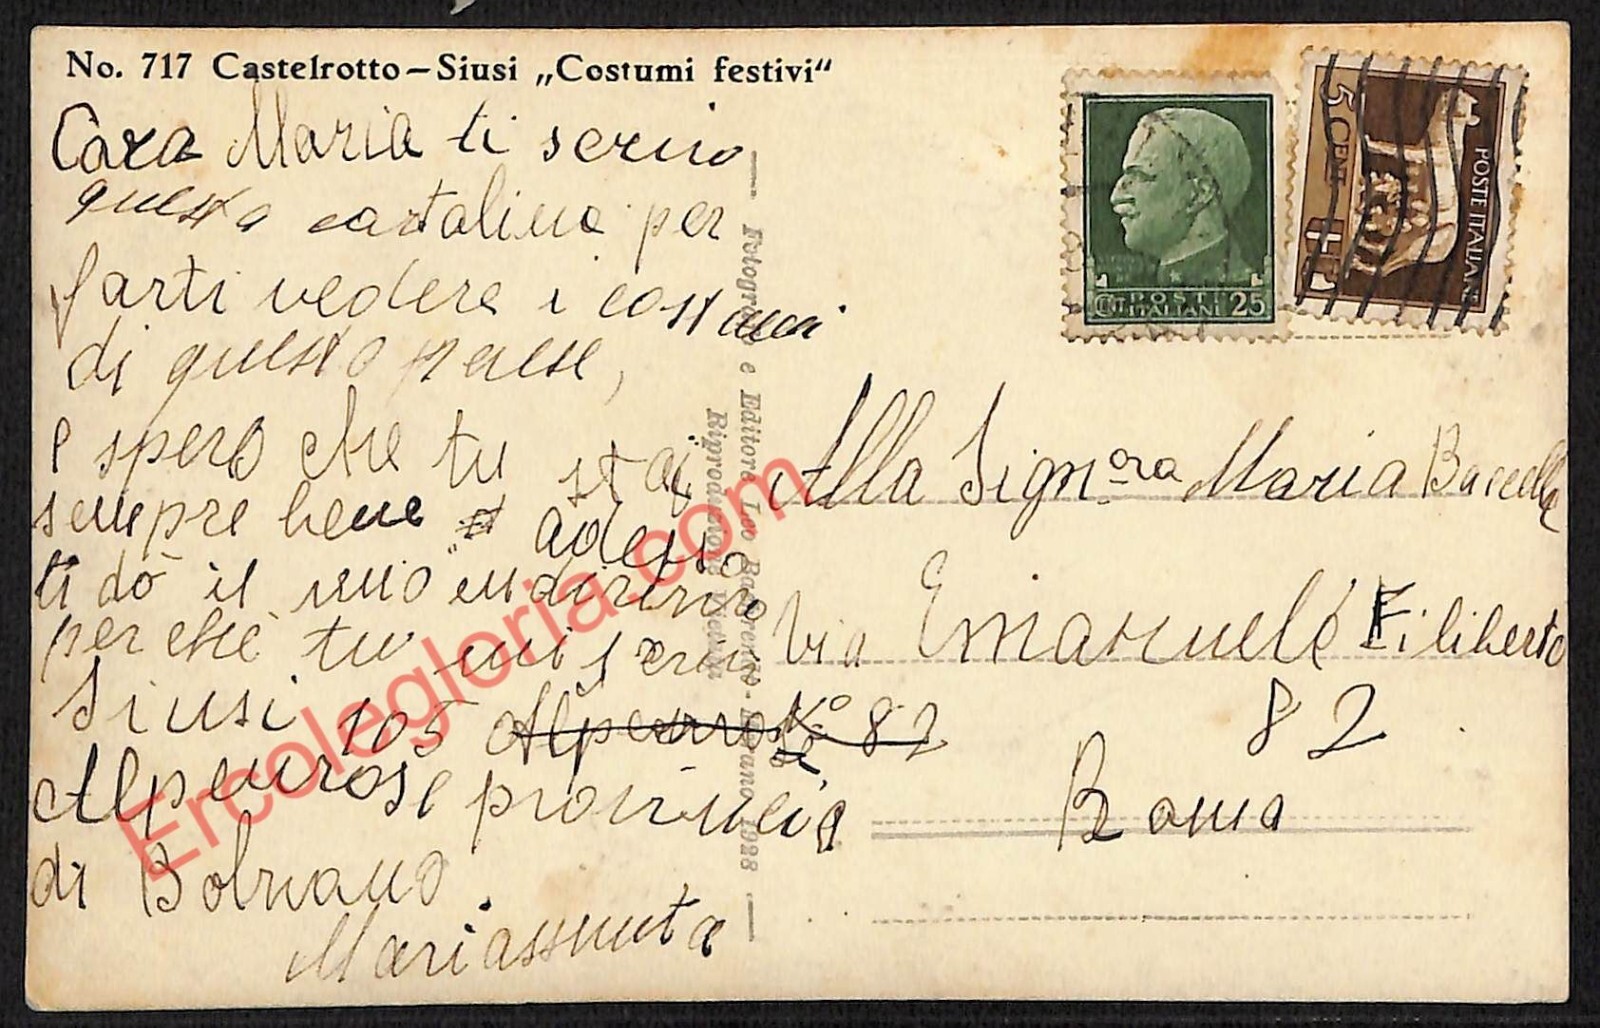 No. 717 Castelrotto–Siusi „Costumi festivi“
Cara Maria ti scrivo
questa cartolina per
farti vedere i costumi
di questo paese,
e spero che tu stai
sempre bene adesso
ti dò il mio indirizzo
perchè tu mi scrivi
Siusi 105 Alpenrose No 82
Alpenrose provincia
di Bolzano.
Mariassunta
Fotografo e Editore Leo Bährendt - Merano 1928
Riproduzione vietata
POSTE
ITALIANE 25
CENT
5 CENT.
POSTE ITALIANE
Alla Sign.ora Maria
Via Emanuele Filiberto
82
Roma
Ercolegloria.com